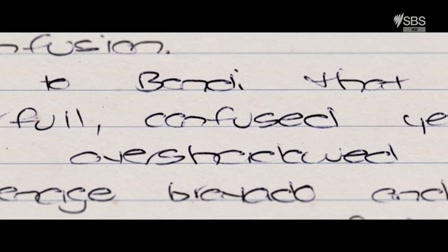 SBS
HD
nfusion.
to Bondi that
full, confused ye
overshadowed
enage bravado and